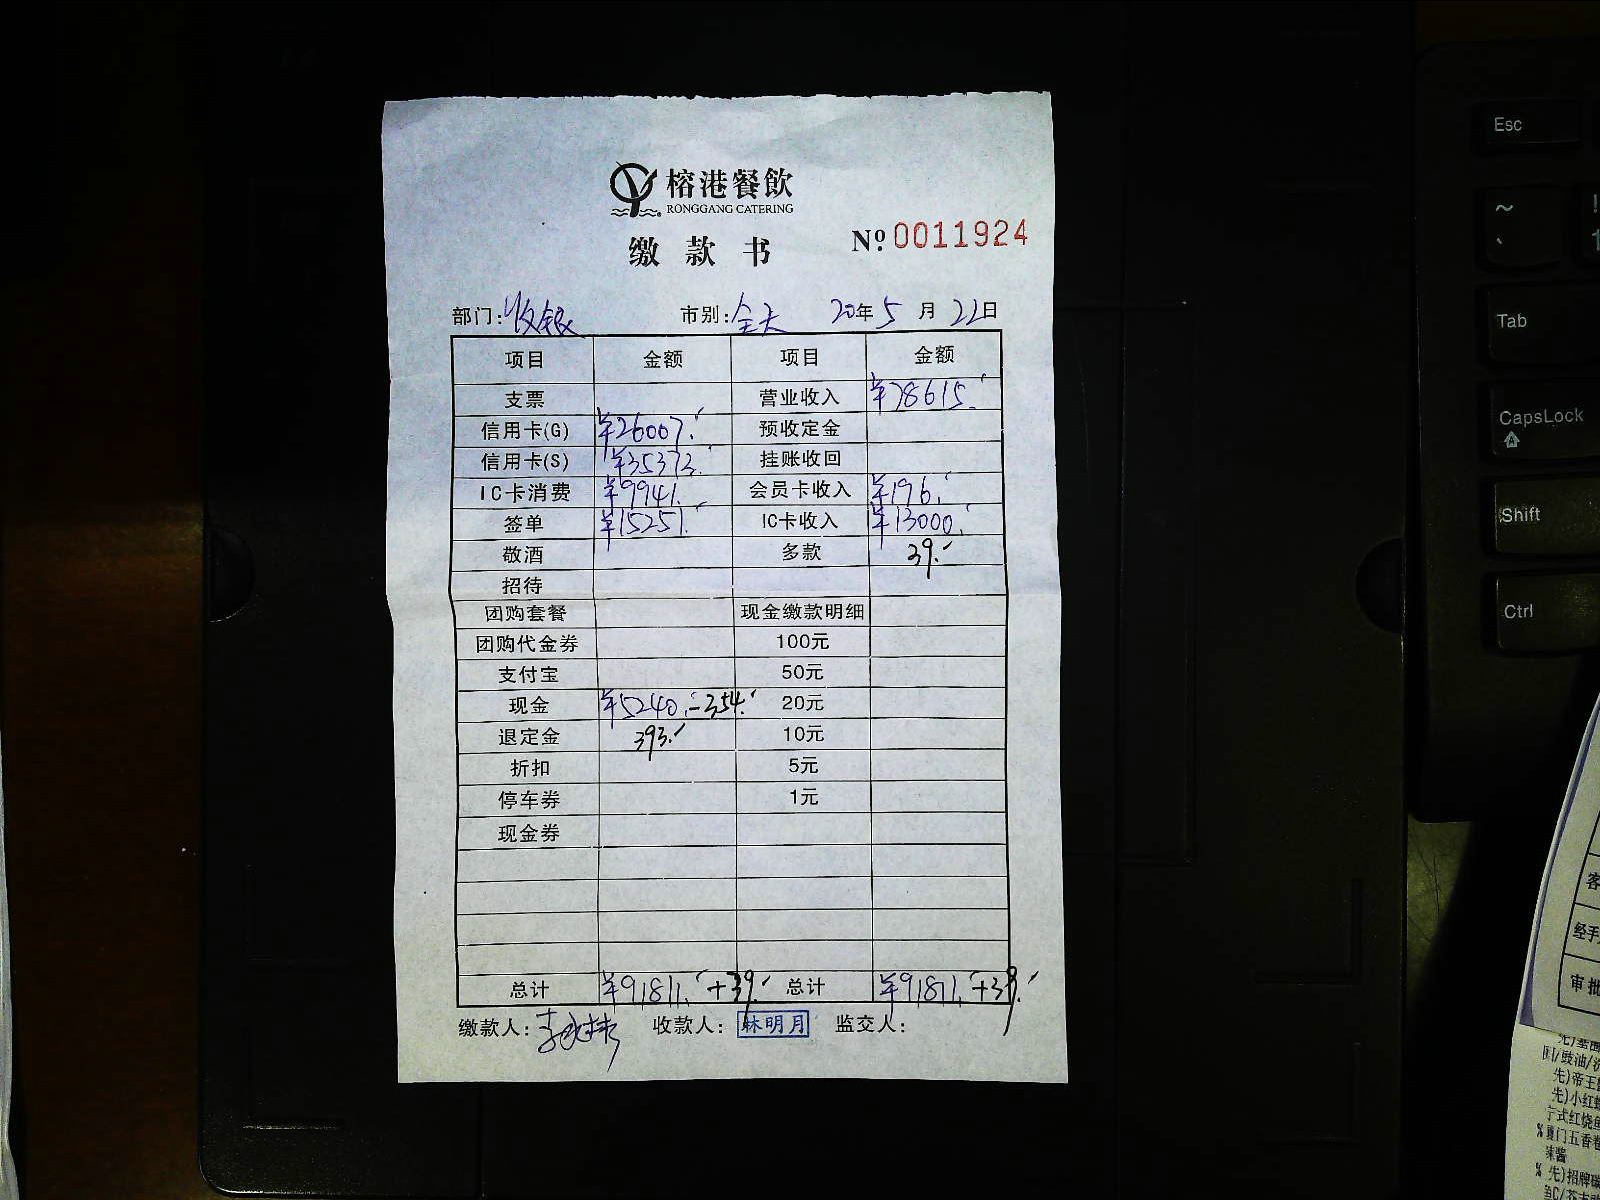 榕港餐飲
RONGGANG CATERING
缴款书 №0011924
部门:收银 市别:全天 20年5月22日
项目 金额 项目 金额
支票 营业收入 ¥78615.
信用卡(G) ¥26007. 预收定金
信用卡(S) ¥35373. 挂账收回
IC卡消费 ¥9941. 会员卡收入 ¥196.
签单 ¥15251. IC卡收入 ¥13000.
敬酒 多款 39.
招待
团购套餐 现金缴款明细
团购代金券 100元
支付宝 50元
现金 ¥5240.-354. 20元
退定金 393. 10元
折扣 5元
停车券 1元
现金券
总计 ¥91811.+39. 总计 ¥91811.+39.
缴款人: 收款人:林明月 监交人:
Esc
~
Tab
CapsLock
Shift
Ctrl
客
经手
审批